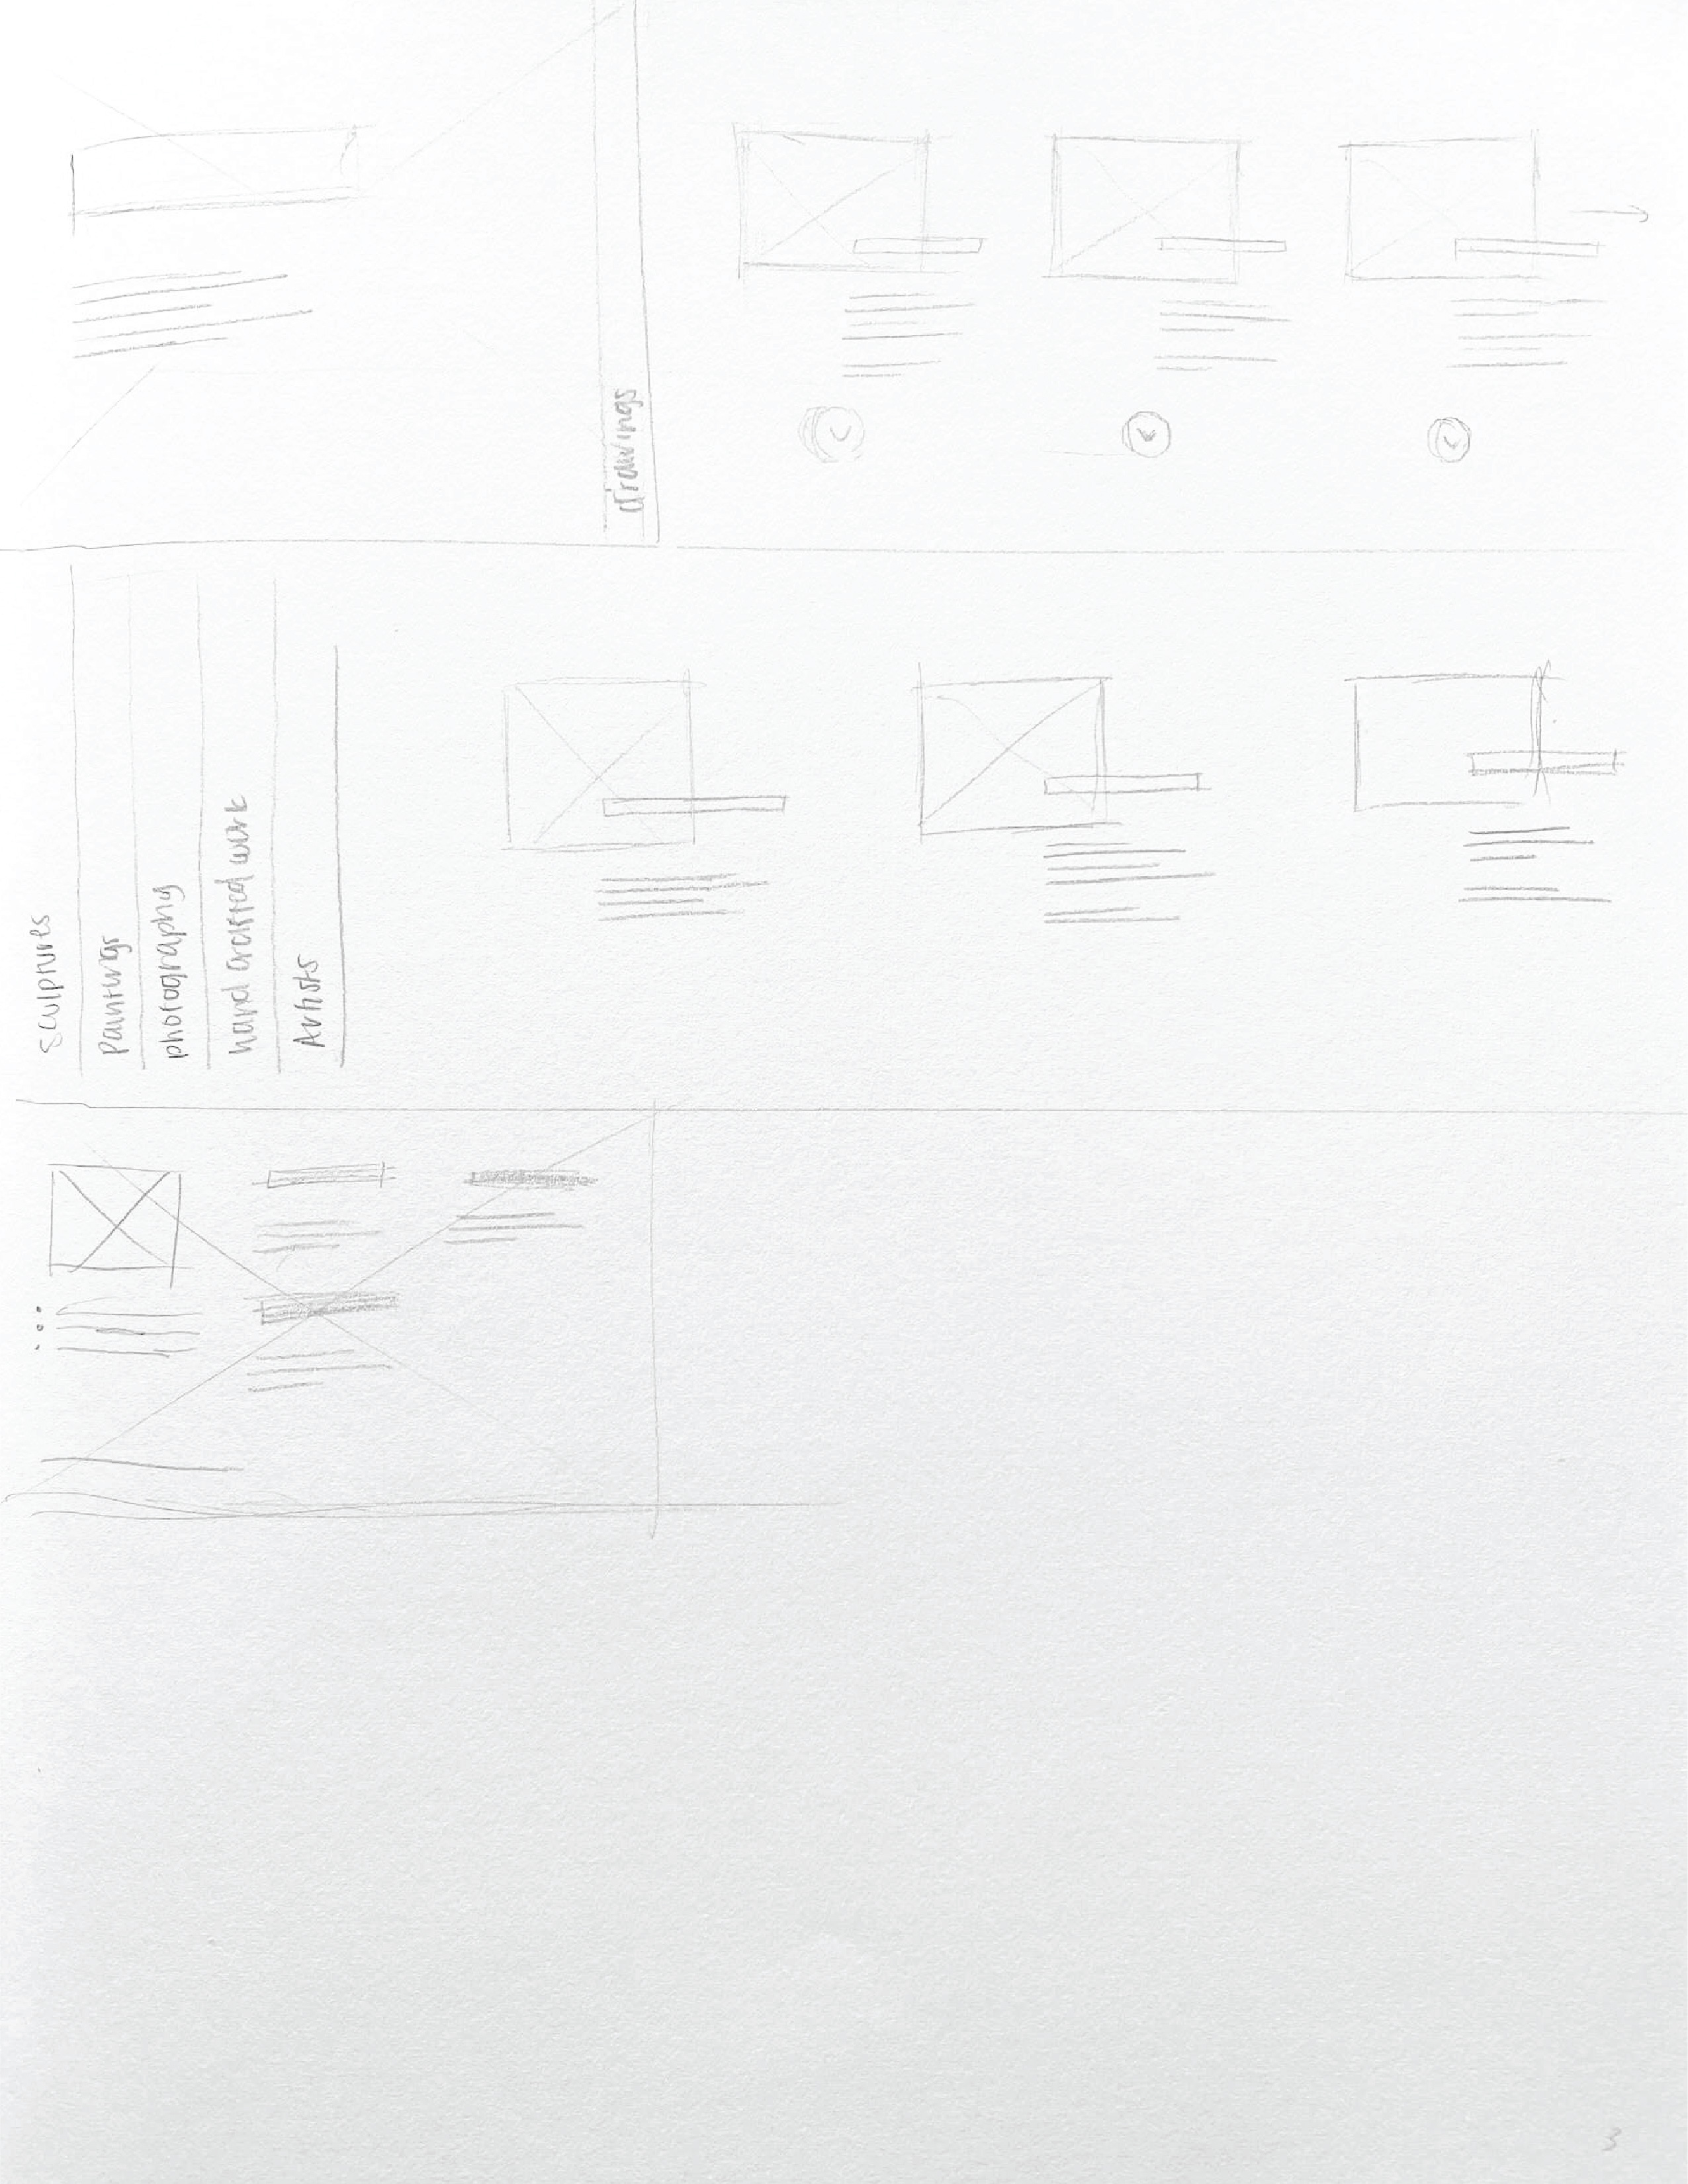 drawings
Sculptures
Paintings
photography
hand crafted work
Artists
3